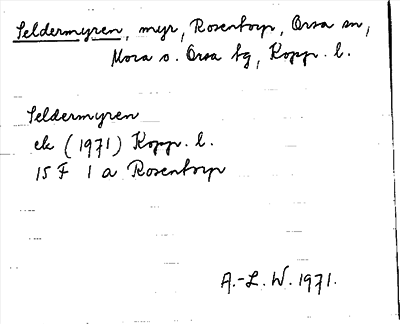 Seldermyren, myr, Rosentorp, Orsa sn,
Mora o. Orsa tg, Kopp. l.
Seldermyren
ek (1971) Kopp. l.
15 F 1 a Rosentorp
A.-L. W. 1971.